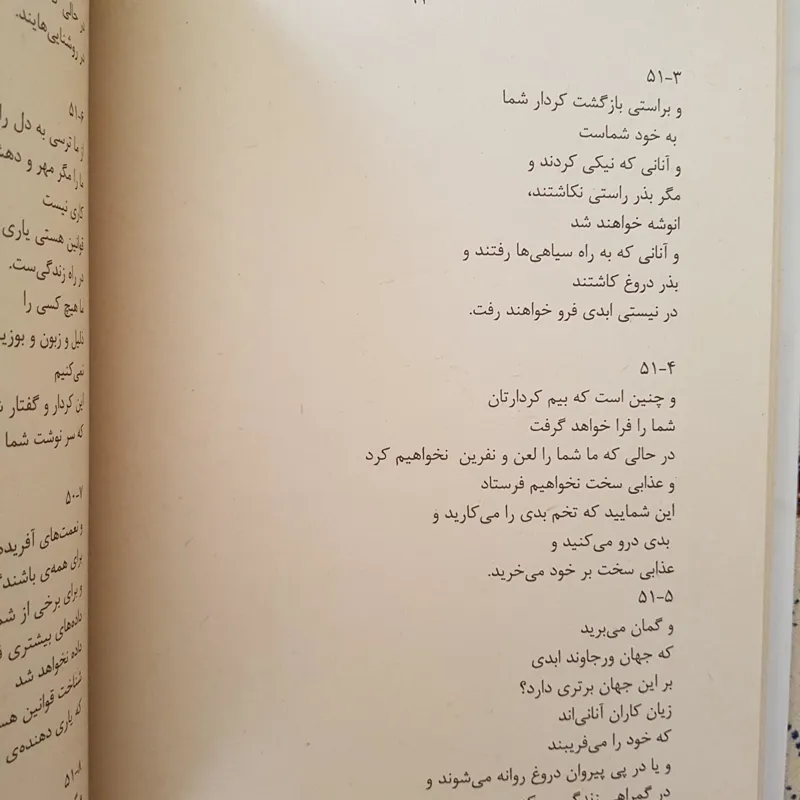 ۵۱-۳
و براستی بازگشت کردار شما
به خود شماست
و آنانی که نیکی کردند و
مگر بذر راستی نکاشتند،
انوشه خواهند شد
و آنانی که به راه سیاهی‌ها رفتند و
بذر دروغ کاشتند
در نیستی ابدی فرو خواهند رفت.
۵۱-۴
و چنین است که بیم کردارتان
شما را فرا خواهد گرفت
در حالی که ما شما را لعن و نفرین نخواهیم کرد
و عذابی سخت نخواهیم فرستاد
این شمایید که تخم بدی را می‌کارید و
بدی درو می‌کنید و
عذابی سخت بر خود می‌خرید.
۵۱-۵
و گمان می‌برید
که جهان ورجاوند ابدی
بر این جهان برتری دارد؟
زیان کاران آنانی‌اند
که خود را می‌فریبند
و یا در پی پیروان دروغ روانه می‌شوند و
در گمراهی زندگی
در حالی
در روشنایی‌هایند.
۵۱-۶
از ما ترسی به دل را
ما را مگر مهر و
کاری نیست
قوانین هستی یاری
در راه زندگی‌ست.
ما هیچ کسی را
ذلیل و زبون و
نمی‌کنیم
این کردار و گفتار
که سر نوشت شما
۵۰-۷
و نعمت‌های
برای همه‌ی
و برای برخی از
داده‌های بیشتری
داده نخواهد شد
شناخت قوانین
که یاری دهنده‌ی
۵۱-۸